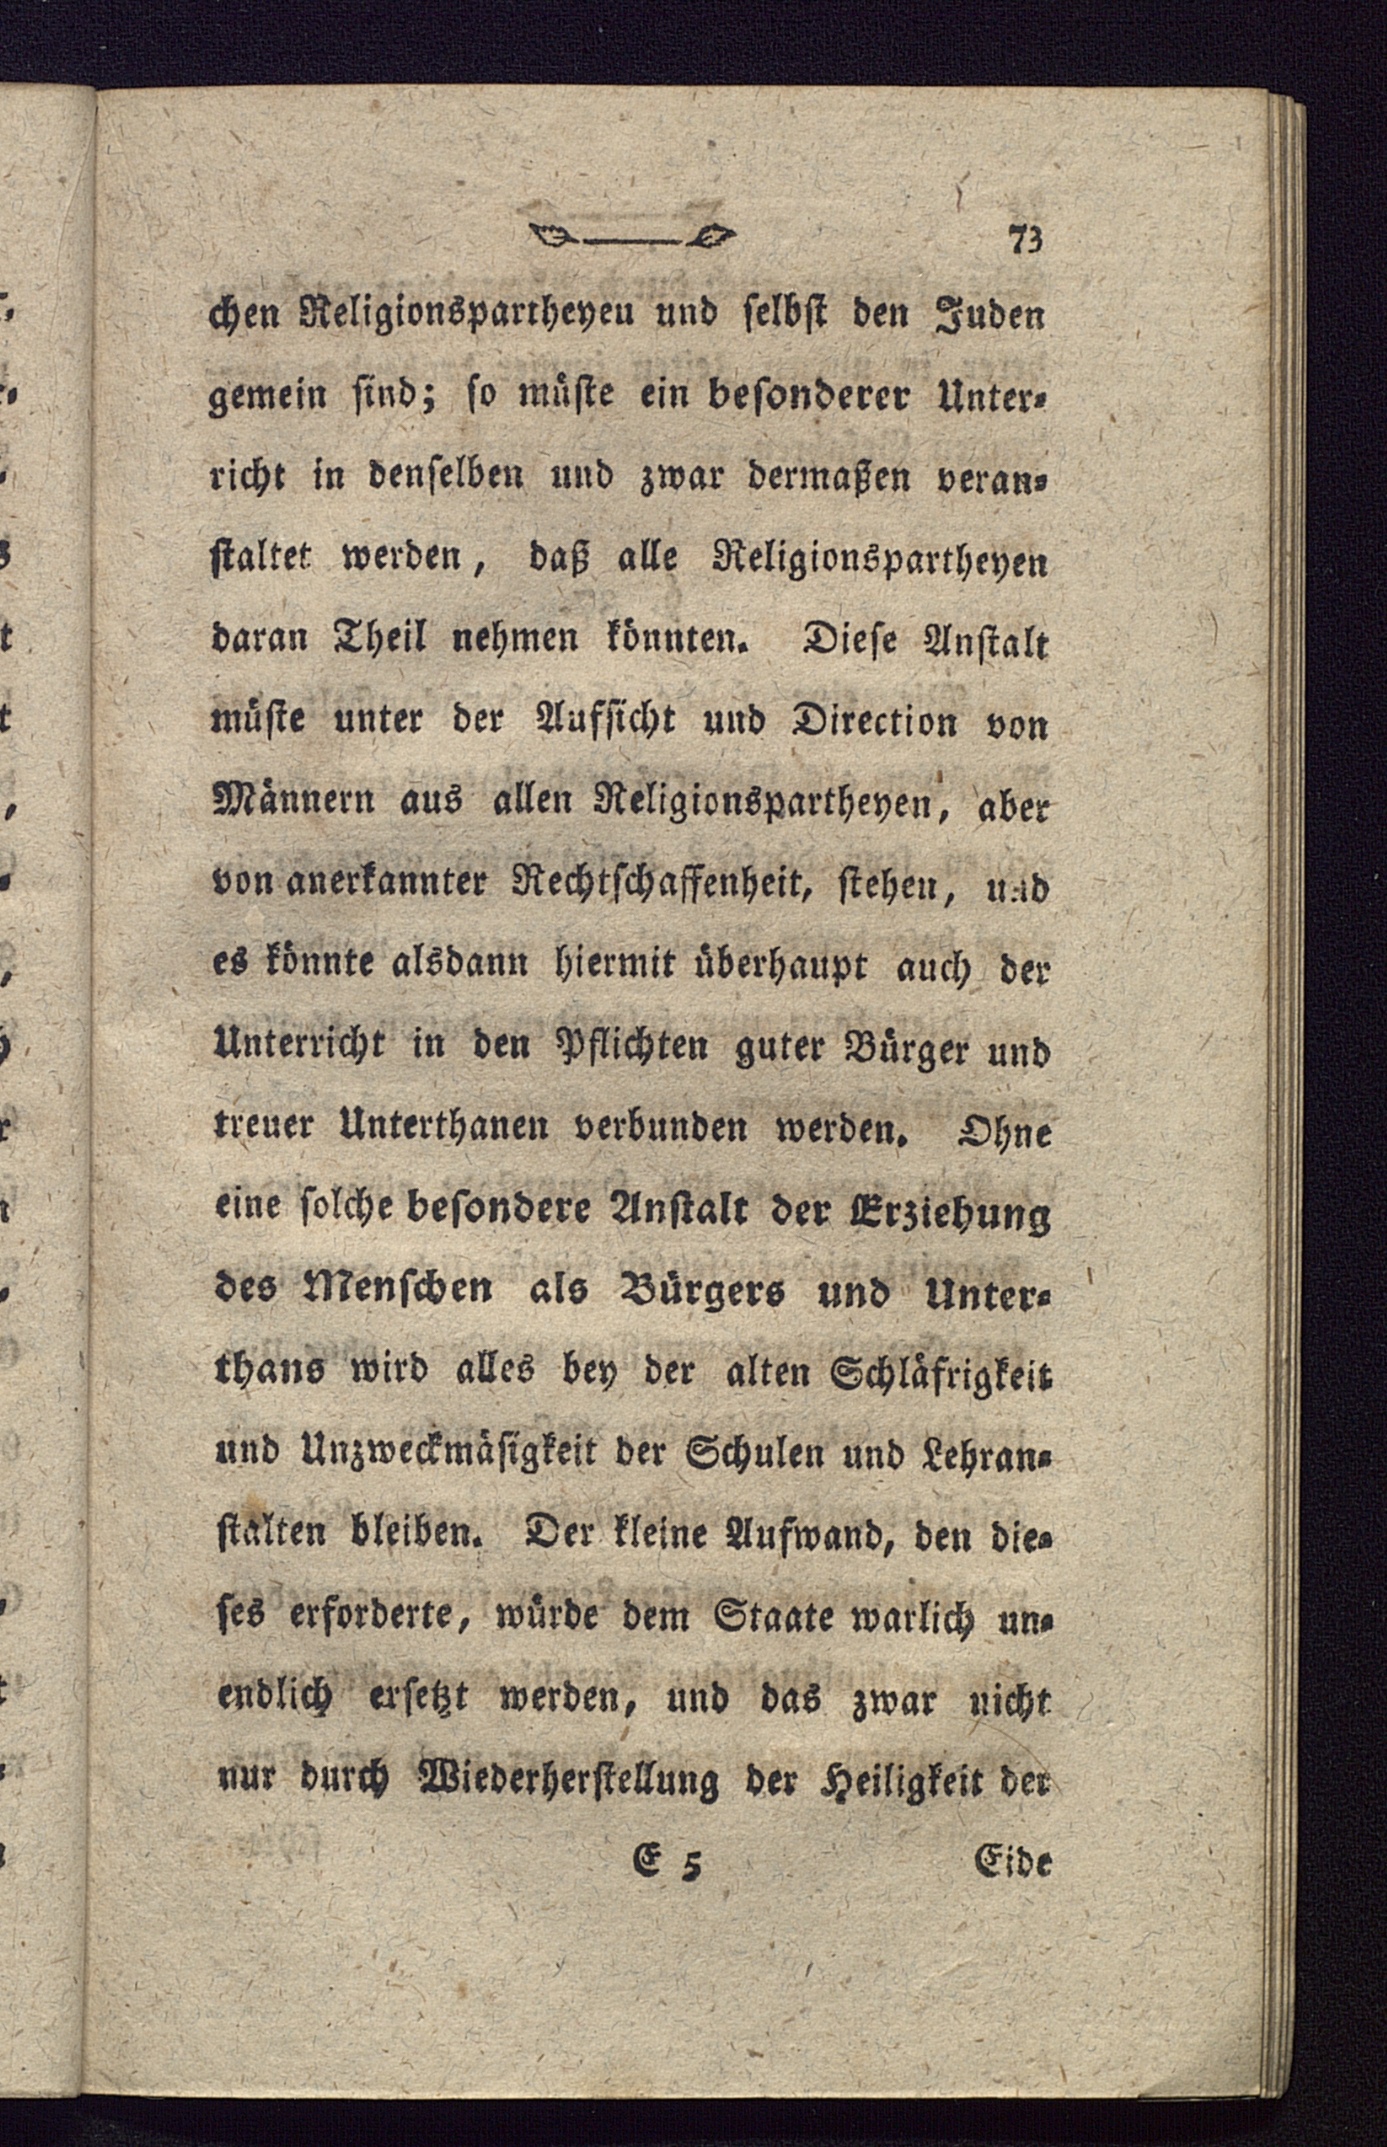 73
chen Religionspartheyen und selbst den Juden
gemein sind; so müste ein besonderer Unter-
richt in denselben und zwar dermaßen veran-
staltet werden, daß alle Religionspartheyen
daran Theil nehmen könnten. Diese Anstalt
müste unter der Aufsicht und Direction von
Männern aus allen Religionspartheyen, aber
von anerkannter Rechtschaffenheit, stehen, und
es könnte alsdann hiermit überhaupt auch der
Unterricht in den Pflichten guter Bürger und
treuer Unterthanen verbunden werden. Ohne
eine solche besondere Anstalt der Erziehung
des Menschen als Bürgers und Unter-
thans wird alles bey der alten Schläfrigkeit
und Unzweckmäsigkeit der Schulen und Lehran-
stalten bleiben. Der kleine Aufwand, den die-
ses erforderte, würde dem Staate warlich un-
endlich ersetzt werden, und das zwar nicht
nur durch Wiederherstellung der Heiligkeit der
E 5 Eide